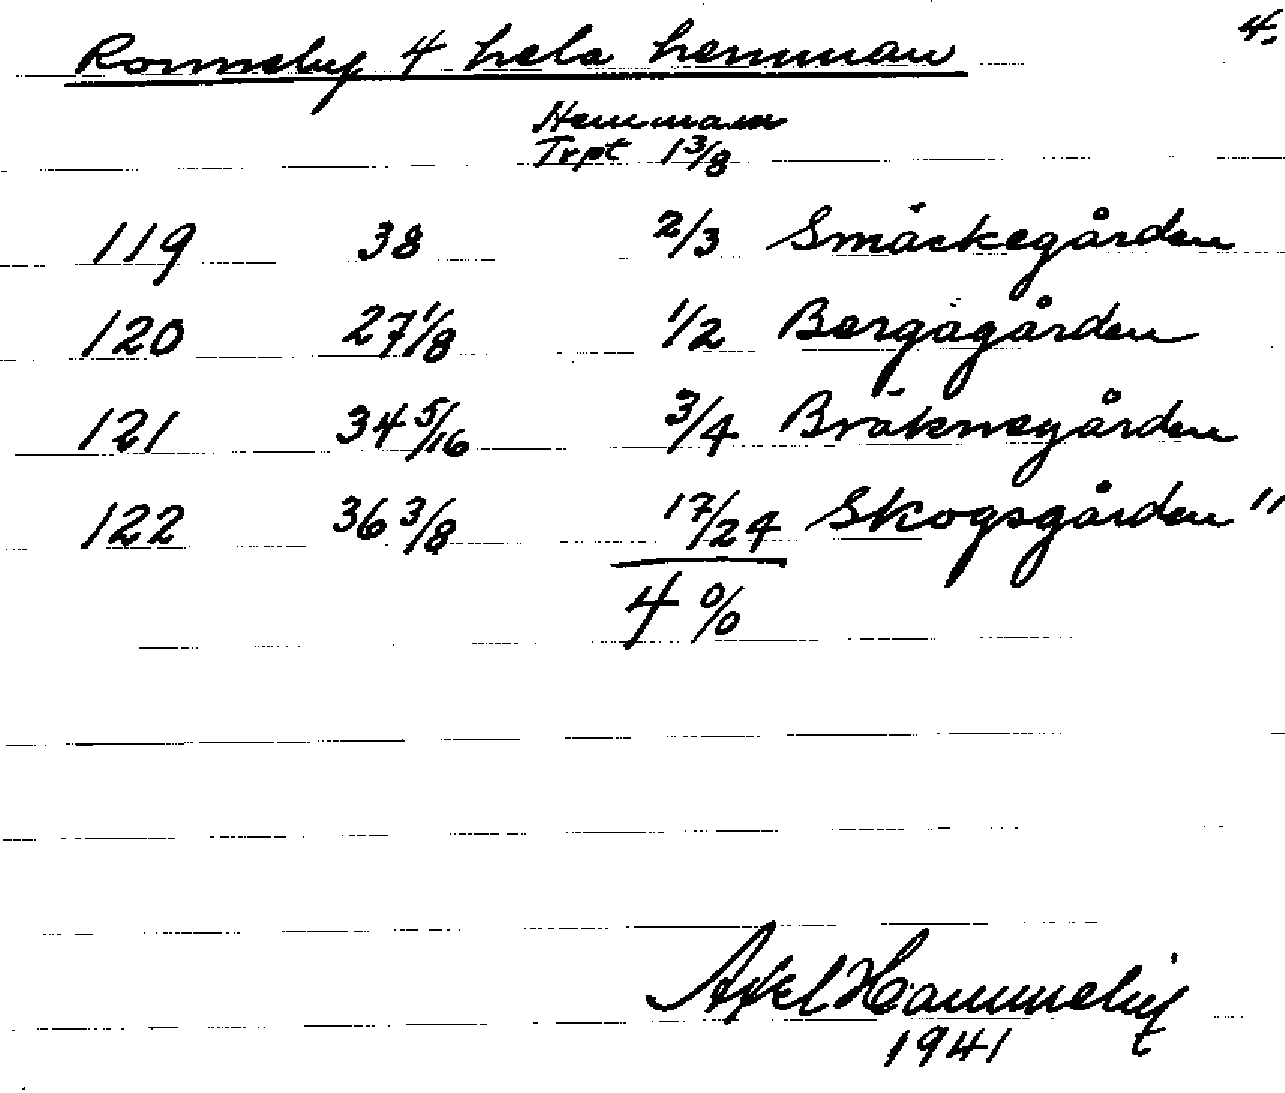 4.
Ronneby 4 hela hemman
Hemman
Trpt 1 3/8
119 38 2/3 Smäckegården
120 27 1/8 1/2 Bergagården
121 34 5/16 3/4 Bräknegården
122 36 3/8 17/24 Skogsgården "
4 %
Axel Hammeby
1941